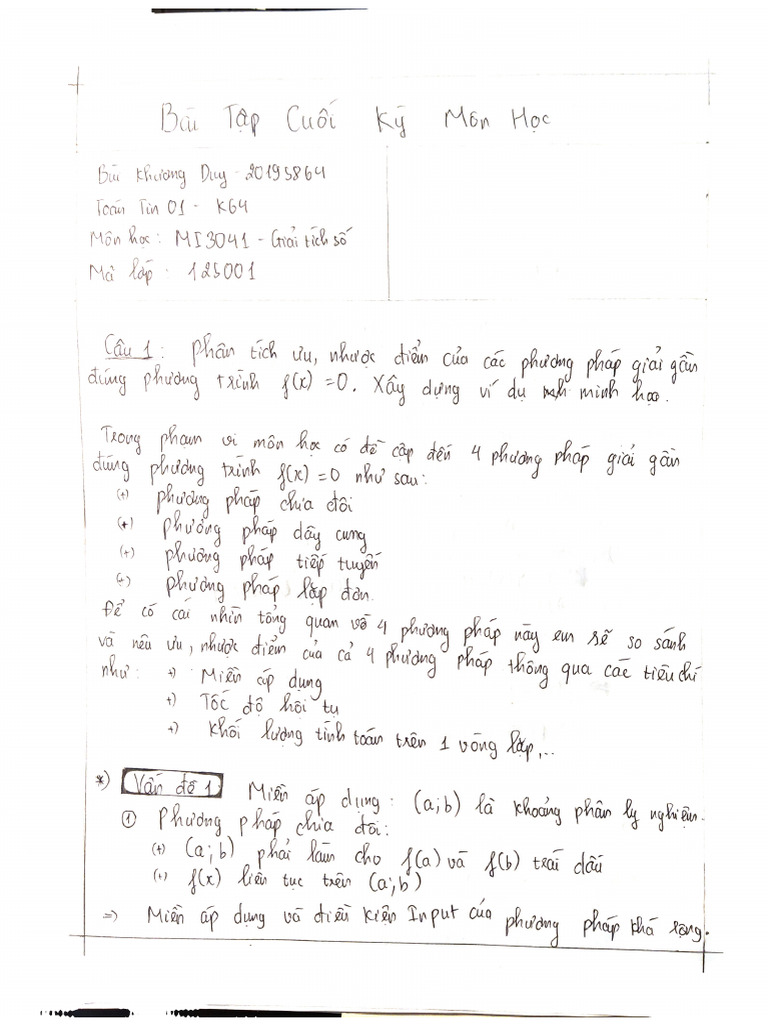 Bài Tập Cuối Kỳ Môn Học
Bùi Khương Duy - 20195864
Toán Tin 01 - K64
Môn học: MI3041 - Giải tích số
Mã lớp: 125001
Câu 1: Phân tích ưu, nhược điểm của các phương pháp giải gần
đúng phương trình f(x) = 0. Xây dựng ví dụ minh họa.
Trong phạm vi môn học có đề cập đến 4 phương pháp giải gần
đúng phương trình f(x) = 0 như sau:
(+) phương pháp chia đôi
(+) phương pháp dây cung
(+) phương pháp tiếp tuyến
(+) phương pháp lặp đơn.
Để có cái nhìn tổng quan về 4 phương pháp này em sẽ so sánh
và nêu ưu, nhược điểm của cả 4 phương pháp thông qua các tiêu chí
như: +) Miền áp dụng
+) Tốc độ hội tụ
+) Khối lượng tính toán trên 1 vòng lặp,...
*) Vấn đề 1: Miền áp dụng: (a;b) là khoảng phân ly nghiệm.
① Phương pháp chia đôi:
(+) (a;b) phải làm cho f(a) và f(b) trái dấu
(+) f(x) liên tục trên (a;b)
=> Miền áp dụng và điều kiện Input của phương pháp khá rộng.